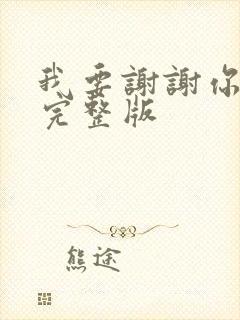 我要謝謝你
完整版
熊途